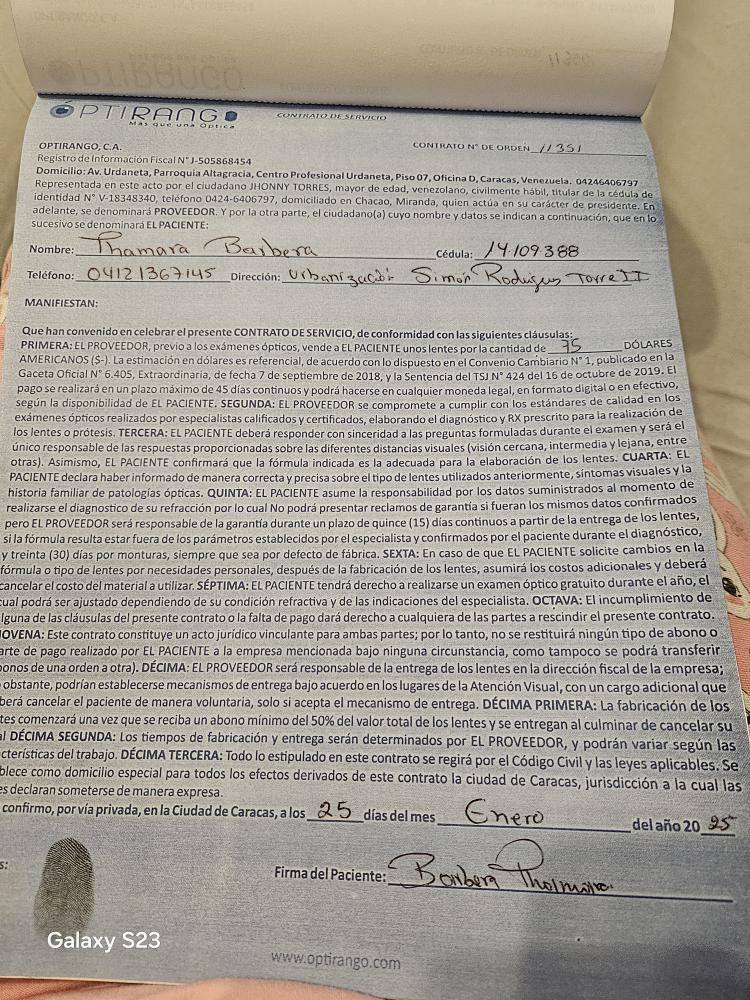 OPTIRANGO
Más que una Óptica
CONTRATO DE SERVICIO
OPTIRANGO, C.A.
CONTRATO N° DE ORDEN 11351
Registro de Información Fiscal N° J-505868454
Domicilio: Av. Urdaneta, Parroquia Altagracia, Centro Profesional Urdaneta, Piso 07, Oficina D, Caracas, Venezuela. 04246406797
Representada en este acto por el ciudadano JHONNY TORRES, mayor de edad, venezolano, civilmente hábil, titular de la cédula de
identidad N° V-18348340, teléfono 0424-6406797, domiciliado en Chacao, Miranda, quien actúa en su carácter de presidente. En
adelante, se denominará PROVEEDOR. Y por la otra parte, el ciudadano(a) cuyo nombre y datos se indican a continuación, que en lo
sucesivo se denominará EL PACIENTE:
Nombre: Thamara Barbera Cédula: 14.109.388
Teléfono: 04121367145 Dirección: Urbanización Simón Rodrigus Torre II
MANIFIESTAN:
Que han convenido en celebrar el presente CONTRATO DE SERVICIO, de conformidad con las siguientes cláusulas:
PRIMERA: EL PROVEEDOR, previo a los exámenes ópticos, vende a EL PACIENTE unos lentes por la cantidad de 75 DÓLARES
AMERICANOS ($-). La estimación en dólares es referencial, de acuerdo con lo dispuesto en el Convenio Cambiario N° 1, publicado en la
Gaceta Oficial N° 6.405, Extraordinaria, de fecha 7 de septiembre de 2018, y la Sentencia del TSJ N° 424 del 16 de octubre de 2019. El
pago se realizará en un plazo máximo de 45 días continuos y podrá hacerse en cualquier moneda legal, en formato digital o en efectivo,
según la disponibilidad de EL PACIENTE. SEGUNDA: EL PROVEEDOR se compromete a cumplir con los estándares de calidad en los
exámenes ópticos realizados por especialistas calificados y certificados, elaborando el diagnóstico y RX prescrito para la realización de
los lentes o prótesis. TERCERA: EL PACIENTE deberá responder con sinceridad a las preguntas formuladas durante el examen y será el
único responsable de las respuestas proporcionadas sobre las diferentes distancias visuales (visión cercana, intermedia y lejana, entre
otras). Asimismo, EL PACIENTE confirmará que la fórmula indicada es la adecuada para la elaboración de los lentes. CUARTA: EL
PACIENTE declara haber informado de manera correcta y precisa sobre el tipo de lentes utilizados anteriormente, síntomas visuales y la
historia familiar de patologías ópticas. QUINTA: EL PACIENTE asume la responsabilidad por los datos suministrados al momento de
realizarse el diagnostico de su refracción por lo cual No podrá presentar reclamos de garantía si fueran los mismos datos confirmados
pero EL PROVEEDOR será responsable de la garantía durante un plazo de quince (15) días continuos a partir de la entrega de los lentes,
si la fórmula resulta estar fuera de los parámetros establecidos por el especialista y confirmados por el paciente durante el diagnóstico,
y treinta (30) días por monturas, siempre que sea por defecto de fábrica. SEXTA: En caso de que EL PACIENTE solicite cambios en la
fórmula o tipo de lentes por necesidades personales, después de la fabricación de los lentes, asumirá los costos adicionales y deberá
cancelar el costo del material a utilizar. SÉPTIMA: EL PACIENTE tendrá derecho a realizarse un examen óptico gratuito durante el año, el
cual podrá ser ajustado dependiendo de su condición refractiva y de las indicaciones del especialista. OCTAVA: El incumplimiento de
lguna de las cláusulas del presente contrato o la falta de pago dará derecho a cualquiera de las partes a rescindir el presente contrato.
NOVENA: Este contrato constituye un acto jurídico vinculante para ambas partes; por lo tanto, no se restituirá ningún tipo de abono o
arte de pago realizado por EL PACIENTE a la empresa mencionada bajo ninguna circunstancia, como tampoco se podrá transferir
bonos de una orden a otra). DÉCIMA: EL PROVEEDOR será responsable de la entrega de los lentes en la dirección fiscal de la empresa;
obstante, podrían establecerse mecanismos de entrega bajo acuerdo en los lugares de la Atención Visual, con un cargo adicional que
berá cancelar el paciente de manera voluntaria, solo si acepta el mecanismo de entrega. DÉCIMA PRIMERA: La fabricación de los
tes comenzará una vez que se reciba un abono mínimo del 50% del valor total de los lentes y se entregan al culminar de cancelar su
al DÉCIMA SEGUNDA: Los tiempos de fabricación y entrega serán determinados por EL PROVEEDOR, y podrán variar según las
cterísticas del trabajo. DÉCIMA TERCERA: Todo lo estipulado en este contrato se regirá por el Código Civil y las leyes aplicables. Se
blece como domicilio especial para todos los efectos derivados de este contrato la ciudad de Caracas, jurisdicción a la cual las
es declaran someterse de manera expresa.
confirmo, por vía privada, en la Ciudad de Caracas, a los 25 días del mes Enero del año 20 25
s:
Firma del Paciente: Barbera Thamara
Galaxy S23
www.optirango.com